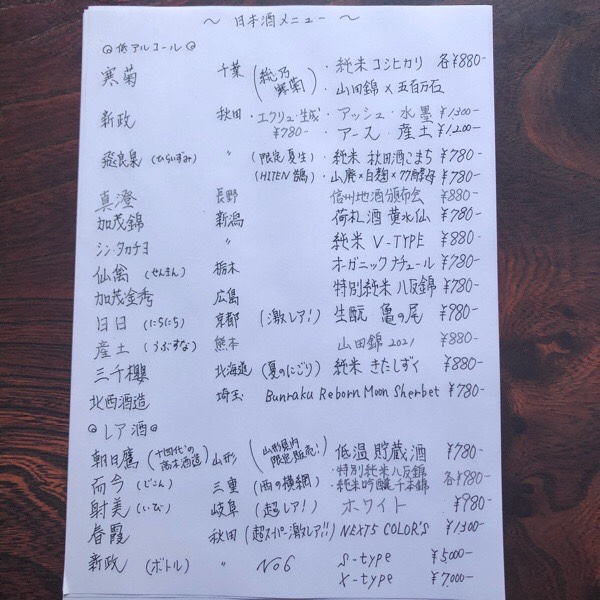 ～ 日本酒メニュー ～
◎低アルコール◎
寒菊 千葉 (総乃寒菊) ・純米コシヒカリ 各¥880-
・山田錦×五百万石
新政 秋田 ・エクリュ・生成 ¥780- ・アッシュ・水墨 ¥1,300-
・アース・産土 ¥1,200-
飛良泉 (ひらいずみ) 〃 (限定夏生) ・純米 秋田酒こまち ¥780-
(HITEN 鵠) ・山廃×白麹×77酵母 ¥780-
真澄 長野 信州地酒頒布会 ¥880-
加茂錦 新潟 荷札酒 黄水仙 ¥780-
シン・タカチヨ 〃 純米 V-TYPE ¥880-
仙禽 (せんきん) 栃木 オーガニックナチュール ¥780-
加茂金秀 広島 特別純米 八反錦 ¥780-
日日 (にちにち) 京都 (激レア!) 生酛 亀の尾 ¥980-
産土 (うぶすな) 熊本 山田錦 2021 ¥880-
三千櫻 北海道 (夏のにごり) 純米 きたしずく ¥880-
北西酒造 埼玉 Bunraku Reborn Moon Sherbet ¥780-
◎レア酒◎
朝日鷹 (十四代の高木酒造) 山形 (山形県内限定販売!) 低温貯蔵酒 ¥780-
而今 (じこん) 三重 (西の横綱) ・特別純米 八反錦 各¥980-
・純米吟醸 千本錦
射美 (いび) 岐阜 (超レア!) ホワイト ¥980-
春霞 秋田 (超スーパー激レア!!) NEXT5 COLOR'S ¥1,300-
新政 (ボトル) 〃 No6 S-type ¥5,000-
X-type ¥7,000-